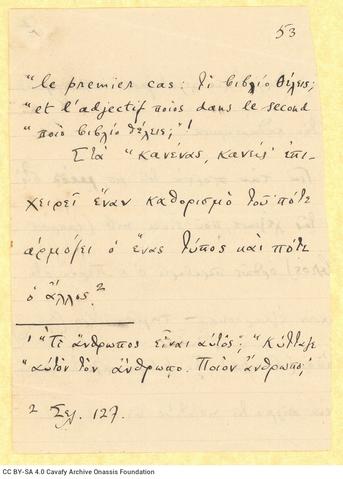 53
"le premier cas: τί βιβλίο θέλεις;
"et l'adjectif ποιός dans le second
"ποιό βιβλίο θέλεις;"¹
Στα "κανένας, κανείς" ἐπι-
χειρεῖ ἕναν καθορισμὸ τοῦ πότε
ἁρμόζει ὁ ἕνας τύπος καὶ πότε
ὁ ἄλλος.²
¹ "Τί ἄνθρωπος εἶναι αὐτός;" "Κύτταξε
"αὐτὸν τὸν ἄνθρωπο. Ποιὸν ἄνθρωπο;"
² Σελ. 127.
CC BY-SA 4.0 Cavafy Archive Onassis Foundation